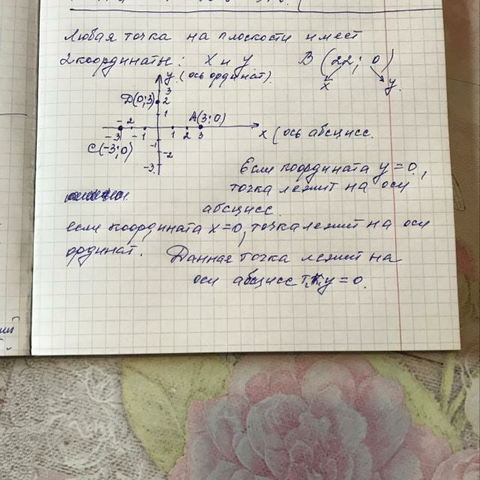 Любая точка на плоскости имеет
2 координаты: x и y B (22; 0)
x y
y (ось ординат).
3
D(0;3) 2
1 A(3;0)
-3 -2 -1 1 2 3 x (ось абсцисс.
C(-3;0) -1
-2
-3
Если координата y = 0,
точка лежит на оси
абсцисс.
если координата x=0, точка лежит на оси
ординат. Данная точка лежит на
оси абсцисс т.к. y = 0.